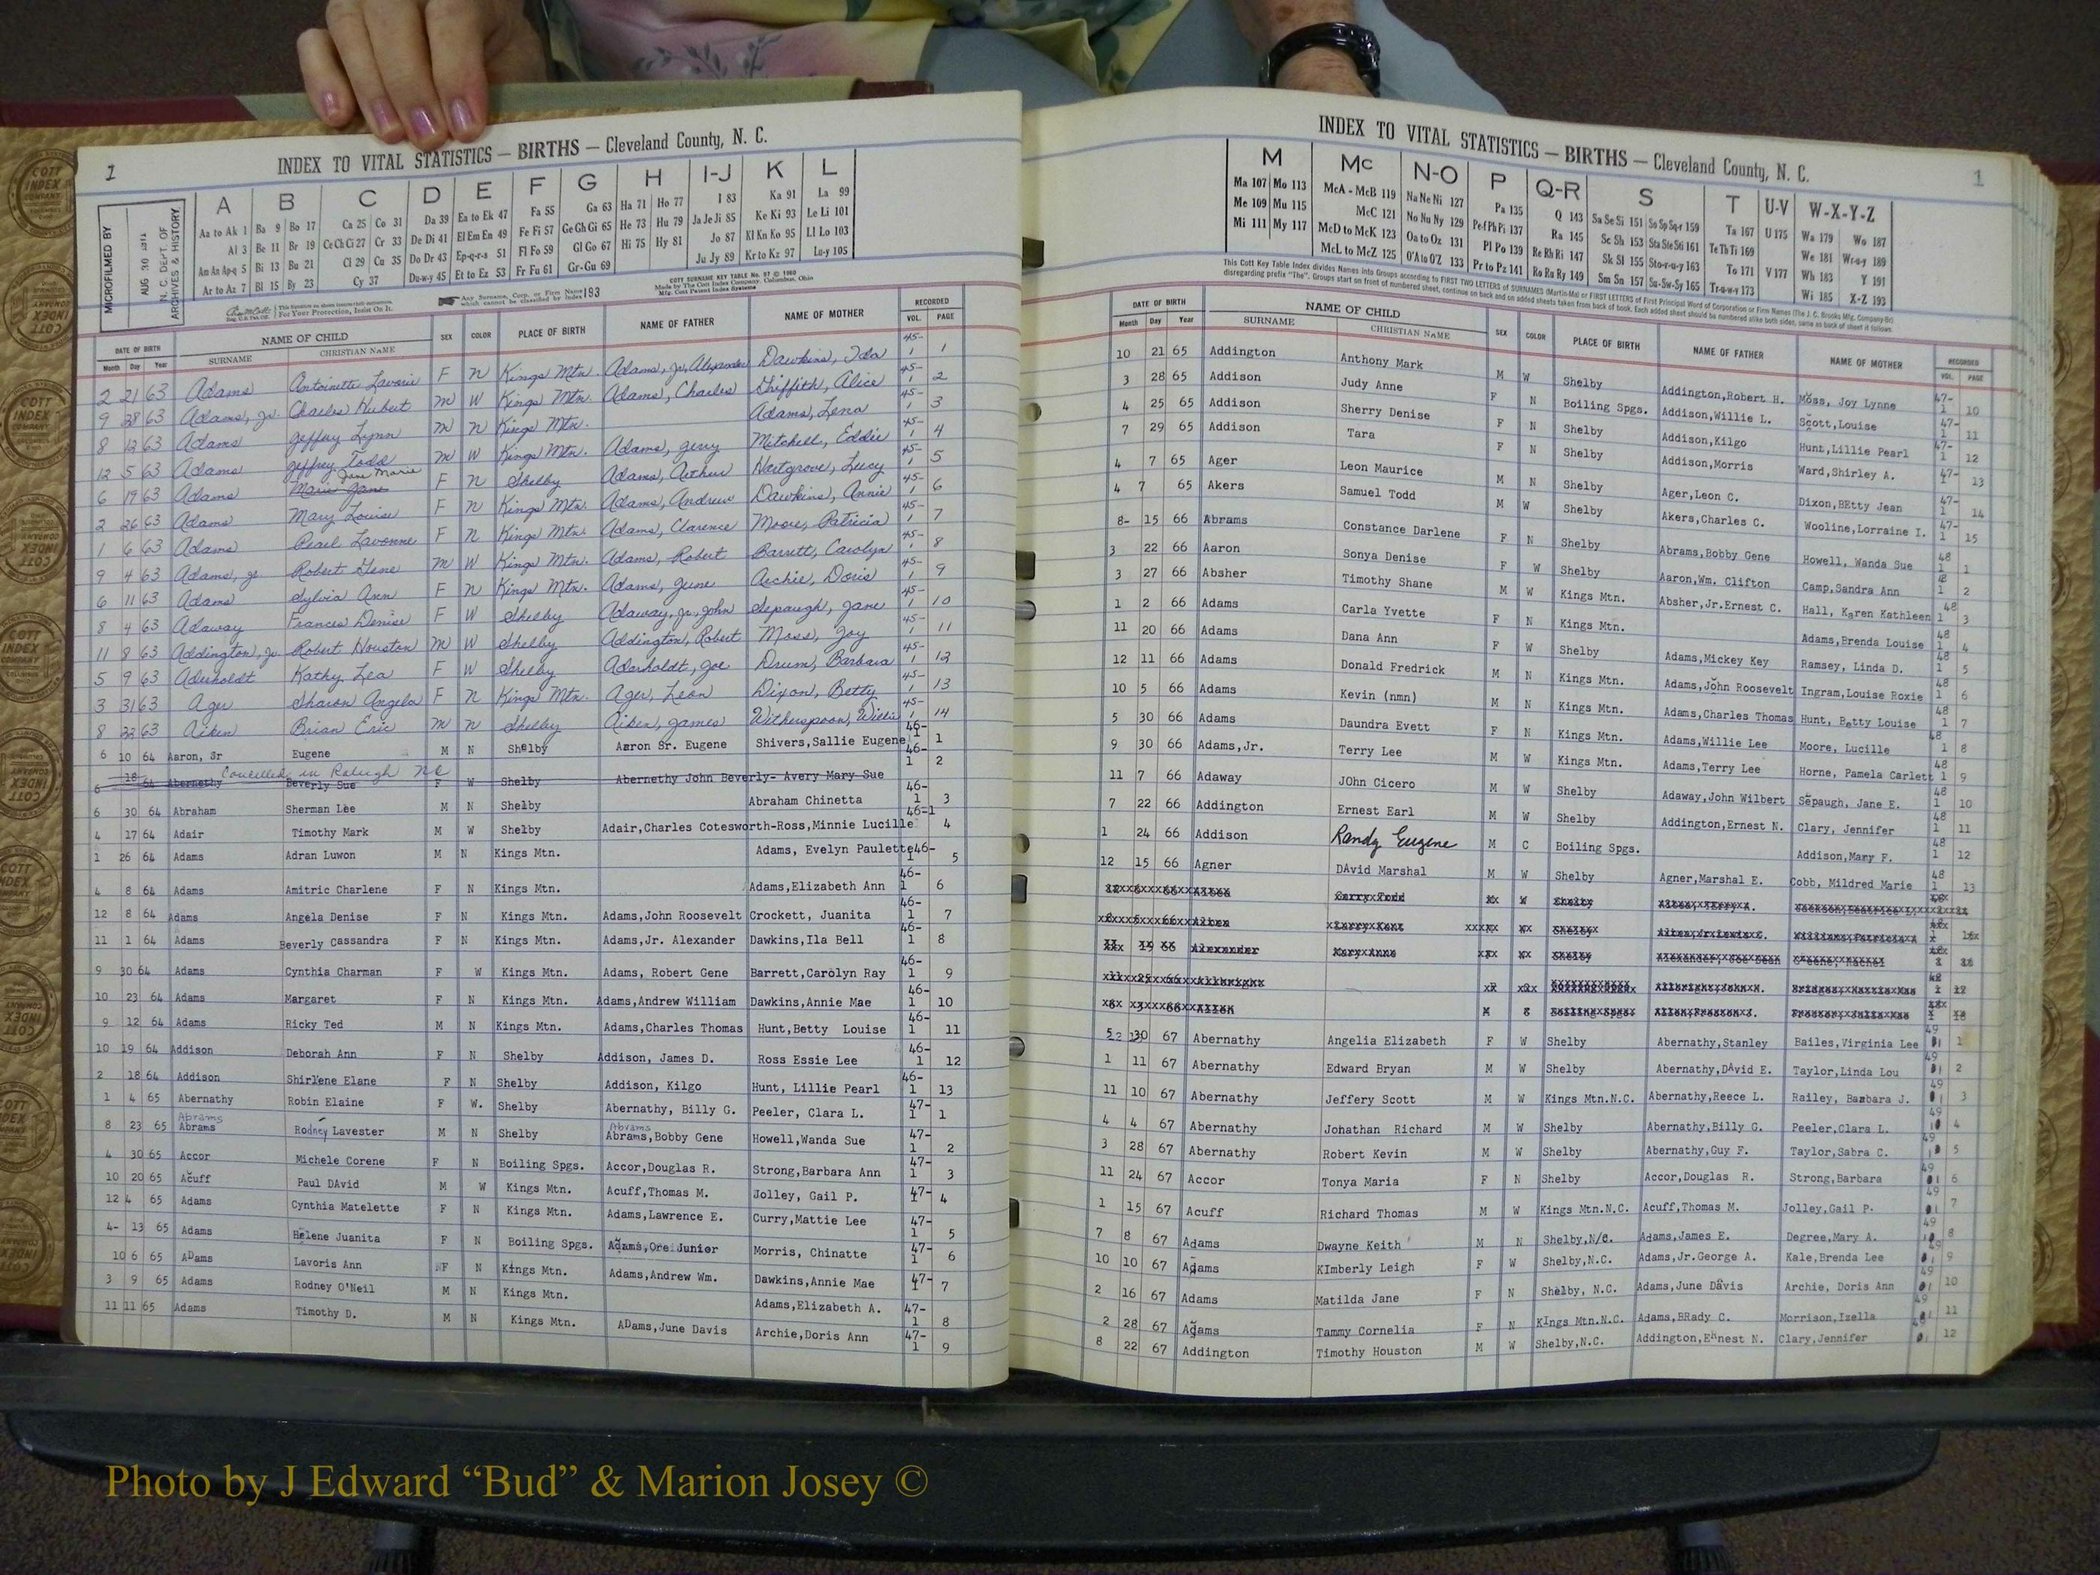 1
INDEX TO VITAL STATISTICS — BIRTHS — Cleveland County, N. C.
MICROFILMED BY
AUG 30
N. C. DEPT. OF
ARCHIVES & HISTORY
A B C D E F G H I-J K L
Aa to Ak 1 Ba 9 Bo 17 Ca 25 Co 31 Da 39 Ea to Ek 47 Fa 55 Ga 63 Ha 71 Ho 77 I 83 Ka 91 La 99
Al 3 Be 11 Br 19 Ce Ch Ci 27 Cr 33 De Di 41 El Em En 49 Fe Fi 57 Ge Gh Gi 65 He 73 Hu 79 Ja Je Ji 85 Ke Ki 93 Le Li 101
Am An Ap-q 5 Bi 13 Bu 21 Cl 29 Cu 35 Do Dr 43 Ep-q-r-s 51 Fl Fo 59 Gl Go 67 Hi 75 Hy 81 Jo 87 Kl Kn Ko 95 Ll Lo 103
Ar to Az 7 Bl 15 By 23 Cy 37 Du-w-y 45 Et to Ez 53 Fr Fu 61 Gr-Gu 69 Ju Jy 89 Kr to Kz 97 Lu-y 105
For Your Protection, Insist On It.
Any Surname, Corp. or Firm Name which cannot be classified by Index 193
COTT SURNAME KEY TABLE No. 97 © 1960
Made by The Cott Index Company, Columbus, Ohio
DATE OF BIRTH NAME OF CHILD SEX COLOR PLACE OF BIRTH NAME OF FATHER NAME OF MOTHER RECORDED
Month Day Year SURNAME CHRISTIAN NAME VOL. PAGE
2 21 63 Adams Antoinette Lavorie F N Kings Mtn. Adams, Jr, Alexander Dawkins, Ida 45-1 1
9 28 63 Adams, Jr. Charles Hubert M W Kings Mtn. Adams, Charles Griffith, Alice 45-1 2
8 12 63 Adams Jeffery Lynn M N Kings Mtn. Adams, Lena 45-1 3
12 5 63 Adams Jeffrey Todd M W Kings Mtn. Adams, Jerry Mitchell, Eddie 45-1 4
6 19 63 Adams Marie Jane Jane Marie F N Shelby Adams, Arthur Hartgrove, Lucy 45-1 5
2 26 63 Adams Mary Louise F N Kings Mtn. Adams, Andrew Dawkins, Annie 45-1 6
1 6 63 Adams Pearl Lavonne F N Kings Mtn. Adams, Clarence Moore, Patricia 45-1 7
9 4 63 Adams, Jr Robert Gene M W Kings Mtn. Adams, Robert Barrett, Carolyn 45-1 8
6 11 63 Adams Sylvia Ann F N Kings Mtn. Adams, June Archie, Doris 45-1 9
8 4 63 Adaway Frances Denise F W Shelby Adaway, Jr, John Sepaugh, Jane 45-1 10
11 8 63 Addington, Jr Robert Houston M W Shelby Addington, Robert Moss, Joy 45-1 11
5 9 63 Aderholdt Kathy Lea F W Shelby Aderholdt, Joe Drum, Barbara 45-1 12
3 31 63 Ager Sharon Angela F N Kings Mtn. Ager, Leon Dixon, Betty 45-1 13
8 22 63 Aiken Brian Eric M N Shelby Aiken, James Witherspoon, Willie 45-1 14
6 10 64 Aaron, Jr Eugene M N Shelby Aaron Sr. Eugene Shivers,Sallie Eugene 46-1 1
6 18 64 Abernethy Cancelled in Raleigh NC Beverly Sue F W Shelby Abernethy John Beverly- Avery Mary Sue 46-1 2
6 30 64 Abraham Sherman Lee M N Shelby Abraham Chinetta 46-1 3
4 17 64 Adair Timothy Mark M W Shelby Adair,Charles Cotesworth-Ross,Minnie Lucille 46-1 4
1 26 64 Adams Adran Luwon M N Kings Mtn. Adams, Evelyn Paulette 46-1 5
4 8 64 Adams Amitric Charlene F N Kings Mtn. Adams,Elizabeth Ann 46-1 6
12 8 64 Adams Angela Denise F N Kings Mtn. Adams,John Roosevelt Crockett, Juanita 46-1 7
11 1 64 Adams Beverly Cassandra F N Kings Mtn. Adams,Jr. Alexander Dawkins,Ila Bell 46-1 8
9 30 64 Adams Cynthia Charman F W Kings Mtn. Adams, Robert Gene Barrett,Carolyn Ray 46-1 9
10 23 64 Adams Margaret F N Kings Mtn. Adams,Andrew William Dawkins,Annie Mae 46-1 10
9 12 64 Adams Ricky Ted M N Kings Mtn. Adams,Charles Thomas Hunt,Betty Louise 46-1 11
10 19 64 Addison Deborah Ann F N Shelby Addison, James D. Ross Essie Lee 46-1 12
2 18 64 Addison Shirlene Elane F N Shelby Addison, Kilgo Hunt, Lillie Pearl 46-1 13
1 4 65 Abernathy Robin Elaine F W. Shelby Abernathy, Billy G. Peeler, Clara L. 47-1 1
8 23 65 Abrams Abrams Rodney Lavester M N Shelby Abrams Abrams,Bobby Gene Howell,Wanda Sue 47-1 2
4 30 65 Accor Michele Corene F N Boiling Spgs. Accor,Douglas R. Strong,Barbara Ann 47-1 3
10 20 65 Acuff Paul DAvid M W Kings Mtn. Acuff,Thomas M. Jolley, Gail P. 47- 4
12 4 65 Adams Cynthia Matelette F N Kings Mtn. Adams,Lawrence E. Curry,Mattie Lee 47-1 5
4- 13 65 Adams Helene Juanita F N Boiling Spgs. Adams,Ore Junior Morris, Chinatte 47-1 6
10 6 65 ADams Lavoris Ann F N Kings Mtn. Adams,Andrew Wm. Dawkins,Annie Mae 47-1 7
3 9 65 Adams Rodney O'Neil M N Kings Mtn. Adams,Elizabeth A. 47-1 8
11 11 65 Adams Timothy D. M N Kings Mtn. ADams,June Davis Archie,Doris Ann 47-1 9
INDEX TO VITAL STATISTICS — BIRTHS — Cleveland County, N. C.
1
M Mc N-O P Q-R S T U-V W-X-Y-Z
Ma 107 Mo 113 McA - McB 119 Na Ne Ni 127 Pa 135 Q 143 Sa Se Si 151 So Sp Sq-r 159 Ta 167 U 175 Wa 179 Wo 187
Me 109 Mu 115 McC 121 No Nu Ny 129 Pe-f Ph Pi 137 Ra 145 Sc Sh 153 Sta Ste Sti 161 Te Th Ti 169 We 181 Wr-u-y 189
Mi 111 My 117 McD to McK 123 Oa to Oz 131 Pl Po 139 Re Rh Ri 147 Sk Sl 155 Sto-r-u-y 163 To 171 V 177 Wh 183 Y 191
McL to McZ 125 O'A to O'Z 133 Pr to Pz 141 Ro Ru Ry 149 Sm Sn 157 Su-Sw-Sy 165 Tr-u-w-y 173 Wi 185 X-Z 193
This Cott Key Table Index divides Names into Groups according to FIRST TWO LETTERS of SURNAMES (Martin-Ma) or FIRST LETTERS of First Principal Word of Corporation or Firm Names (The J. C. Brooks Mfg. Company-Br)
disregarding prefix "The". Groups start on front of numbered sheet, continue on back and on added sheets taken from back of book. Each added sheet should be numbered alike both sides, same as back of sheet it follows
DATE OF BIRTH NAME OF CHILD SEX COLOR PLACE OF BIRTH NAME OF FATHER NAME OF MOTHER RECORDED
Month Day Year SURNAME CHRISTIAN NAME VOL. PAGE
10 21 65 Addington Anthony Mark M W Shelby Addington,Robert H. Moss, Joy Lynne 47-1 10
3 28 65 Addison Judy Anne F N Boiling Spgs. Addison,Willie L. Scott,Louise 47-1 11
4 25 65 Addison Sherry Denise F N Shelby Addison,Kilgo Hunt,Lillie Pearl 47-1 12
7 29 65 Addison Tara F N Shelby Addison,Morris Ward,Shirley A. 47-1 13
4 7 65 Ager Leon Maurice M N Shelby Ager,Leon C. Dixon,BEtty Jean 47-1 14
4 7 65 Akers Samuel Todd M W Shelby Akers,Charles C. Wooline,Lorraine I. 47-1 15
8- 15 66 Abrams Constance Darlene F N Shelby Abrams,Bobby Gene Howell, Wanda Sue 48 1 1
3 22 66 Aaron Sonya Denise F W Shelby Aaron,Wm. Clifton Camp,Sandra Ann 48 1 2
3 27 66 Absher Timothy Shane M W Kings Mtn. Absher,Jr.Ernest C. Hall, Karen Kathleen 48 1 3
1 2 66 Adams Carla Yvette F N Kings Mtn. Adams,Brenda Louise 48 1 4
11 20 66 Adams Dana Ann F W Shelby Adams,Mickey Key Ramsey, Linda D. 48 1 5
12 11 66 Adams Donald Fredrick M N Kings Mtn. Adams,John Roosevelt Ingram,Louise Roxie 48 1 6
10 5 66 Adams Kevin (nmn) M N Kings Mtn. Adams,Charles Thomas Hunt, Betty Louise 48 1 7
5 30 66 Adams Daundra Evett F N Kings Mtn. Adams,Willie Lee Moore, Lucille 48 1 8
9 30 66 Adams,Jr. Terry Lee M W Kings Mtn. Adams,Terry Lee Horne, Pamela Carlett 48 1 9
11 7 66 Adaway JOhn Cicero M W Shelby Adaway,John Wilbert Sepaugh, Jane E. 48 1 10
7 22 66 Addington Ernest Earl M W Shelby Addington,Ernest N. Clary, Jennifer 48 1 11
1 24 66 Addison Randy Eugene M C Boiling Spgs. Addison,Mary F. 48 1 12
12 15 66 Agner DAvid Marshal M W Shelby Agner,Marshal E. Cobb, Mildred Marie 48 1 13
5 30 67 Abernathy Angelia Elizabeth F W Shelby Abernathy,Stanley Bailes,Virginia Lee 49 1 1
1 11 67 Abernathy Edward Bryan M W Shelby Abernathy,DAvid E. Taylor,Linda Lou 49 1 2
11 10 67 Abernathy Jeffery Scott M W Kings Mtn.N.C. Abernathy,Reece L. Railey, Barbara J. 49 1 3
4 4 67 Abernathy Johathan Richard M W Shelby Abernathy,Billy G. Peeler,Clara L. 49 1 4
3 28 67 Abernathy Robert Kevin M W Shelby Abernathy,Guy F. Taylor,Sabra C. 49 1 5
11 24 67 Accor Tonya Maria F N Shelby Accor,Douglas R. Strong,Barbara 49 1 6
1 15 67 Acuff Richard Thomas M W Kings Mtn.N.C. Acuff,Thomas M. Jolley,Gail P. 49 1 7
7 8 67 Adams Dwayne Keith M N Shelby,N/C. Adams,James E. Degree,Mary A. 49 1 8
10 10 67 Adams KImberly Leigh F W Shelby,N.C. Adams,Jr.George A. Kale,Brenda Lee 49 1 9
2 16 67 Adams Matilda Jane F N Shelby, N.C. Adams,June Davis Archie, Doris Ann 49 1 10
2 28 67 Adams Tammy Cornelia F N KIngs Mtn.N.C. Adams,BRady C. Morrison,Izella 49 1 11
8 22 67 Addington Timothy Houston M W Shelby,N.C. Addington,Ernest N. Clary,Jennifer 49 1 12
Photo by J Edward “Bud” & Marion Josey ©